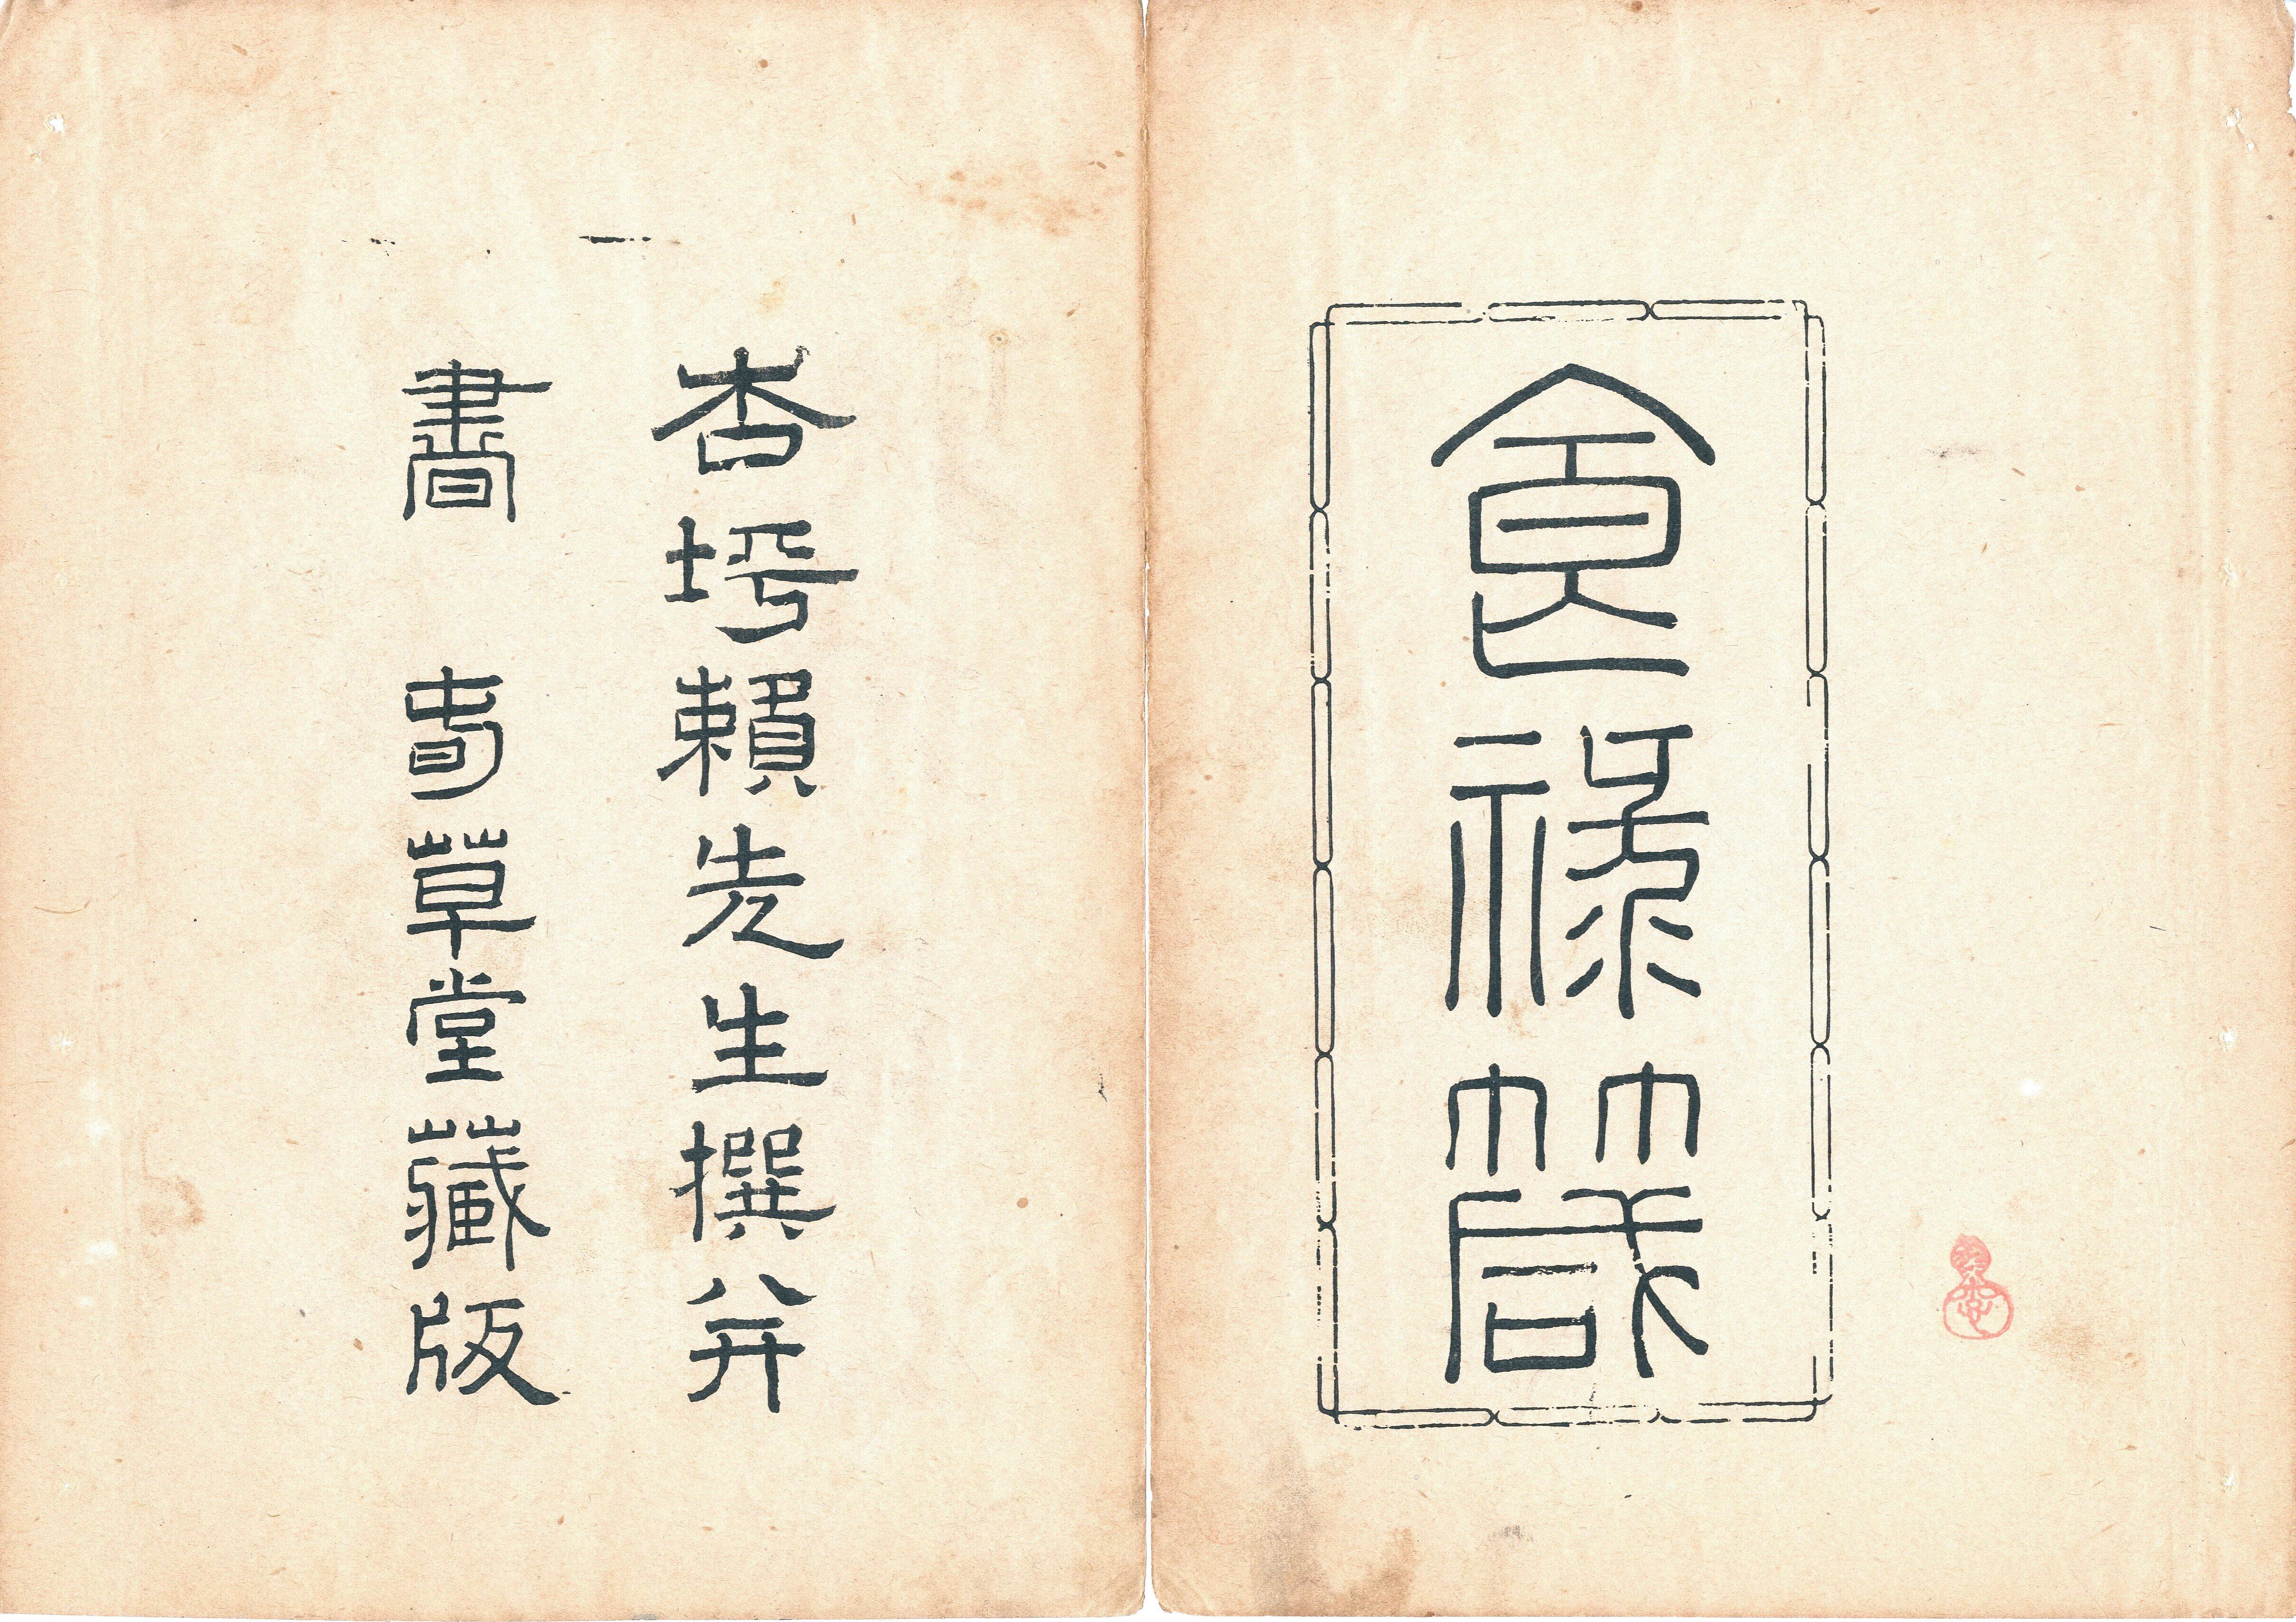 食祿箴
杏坪賴先生撰并
書　旾草堂藏版